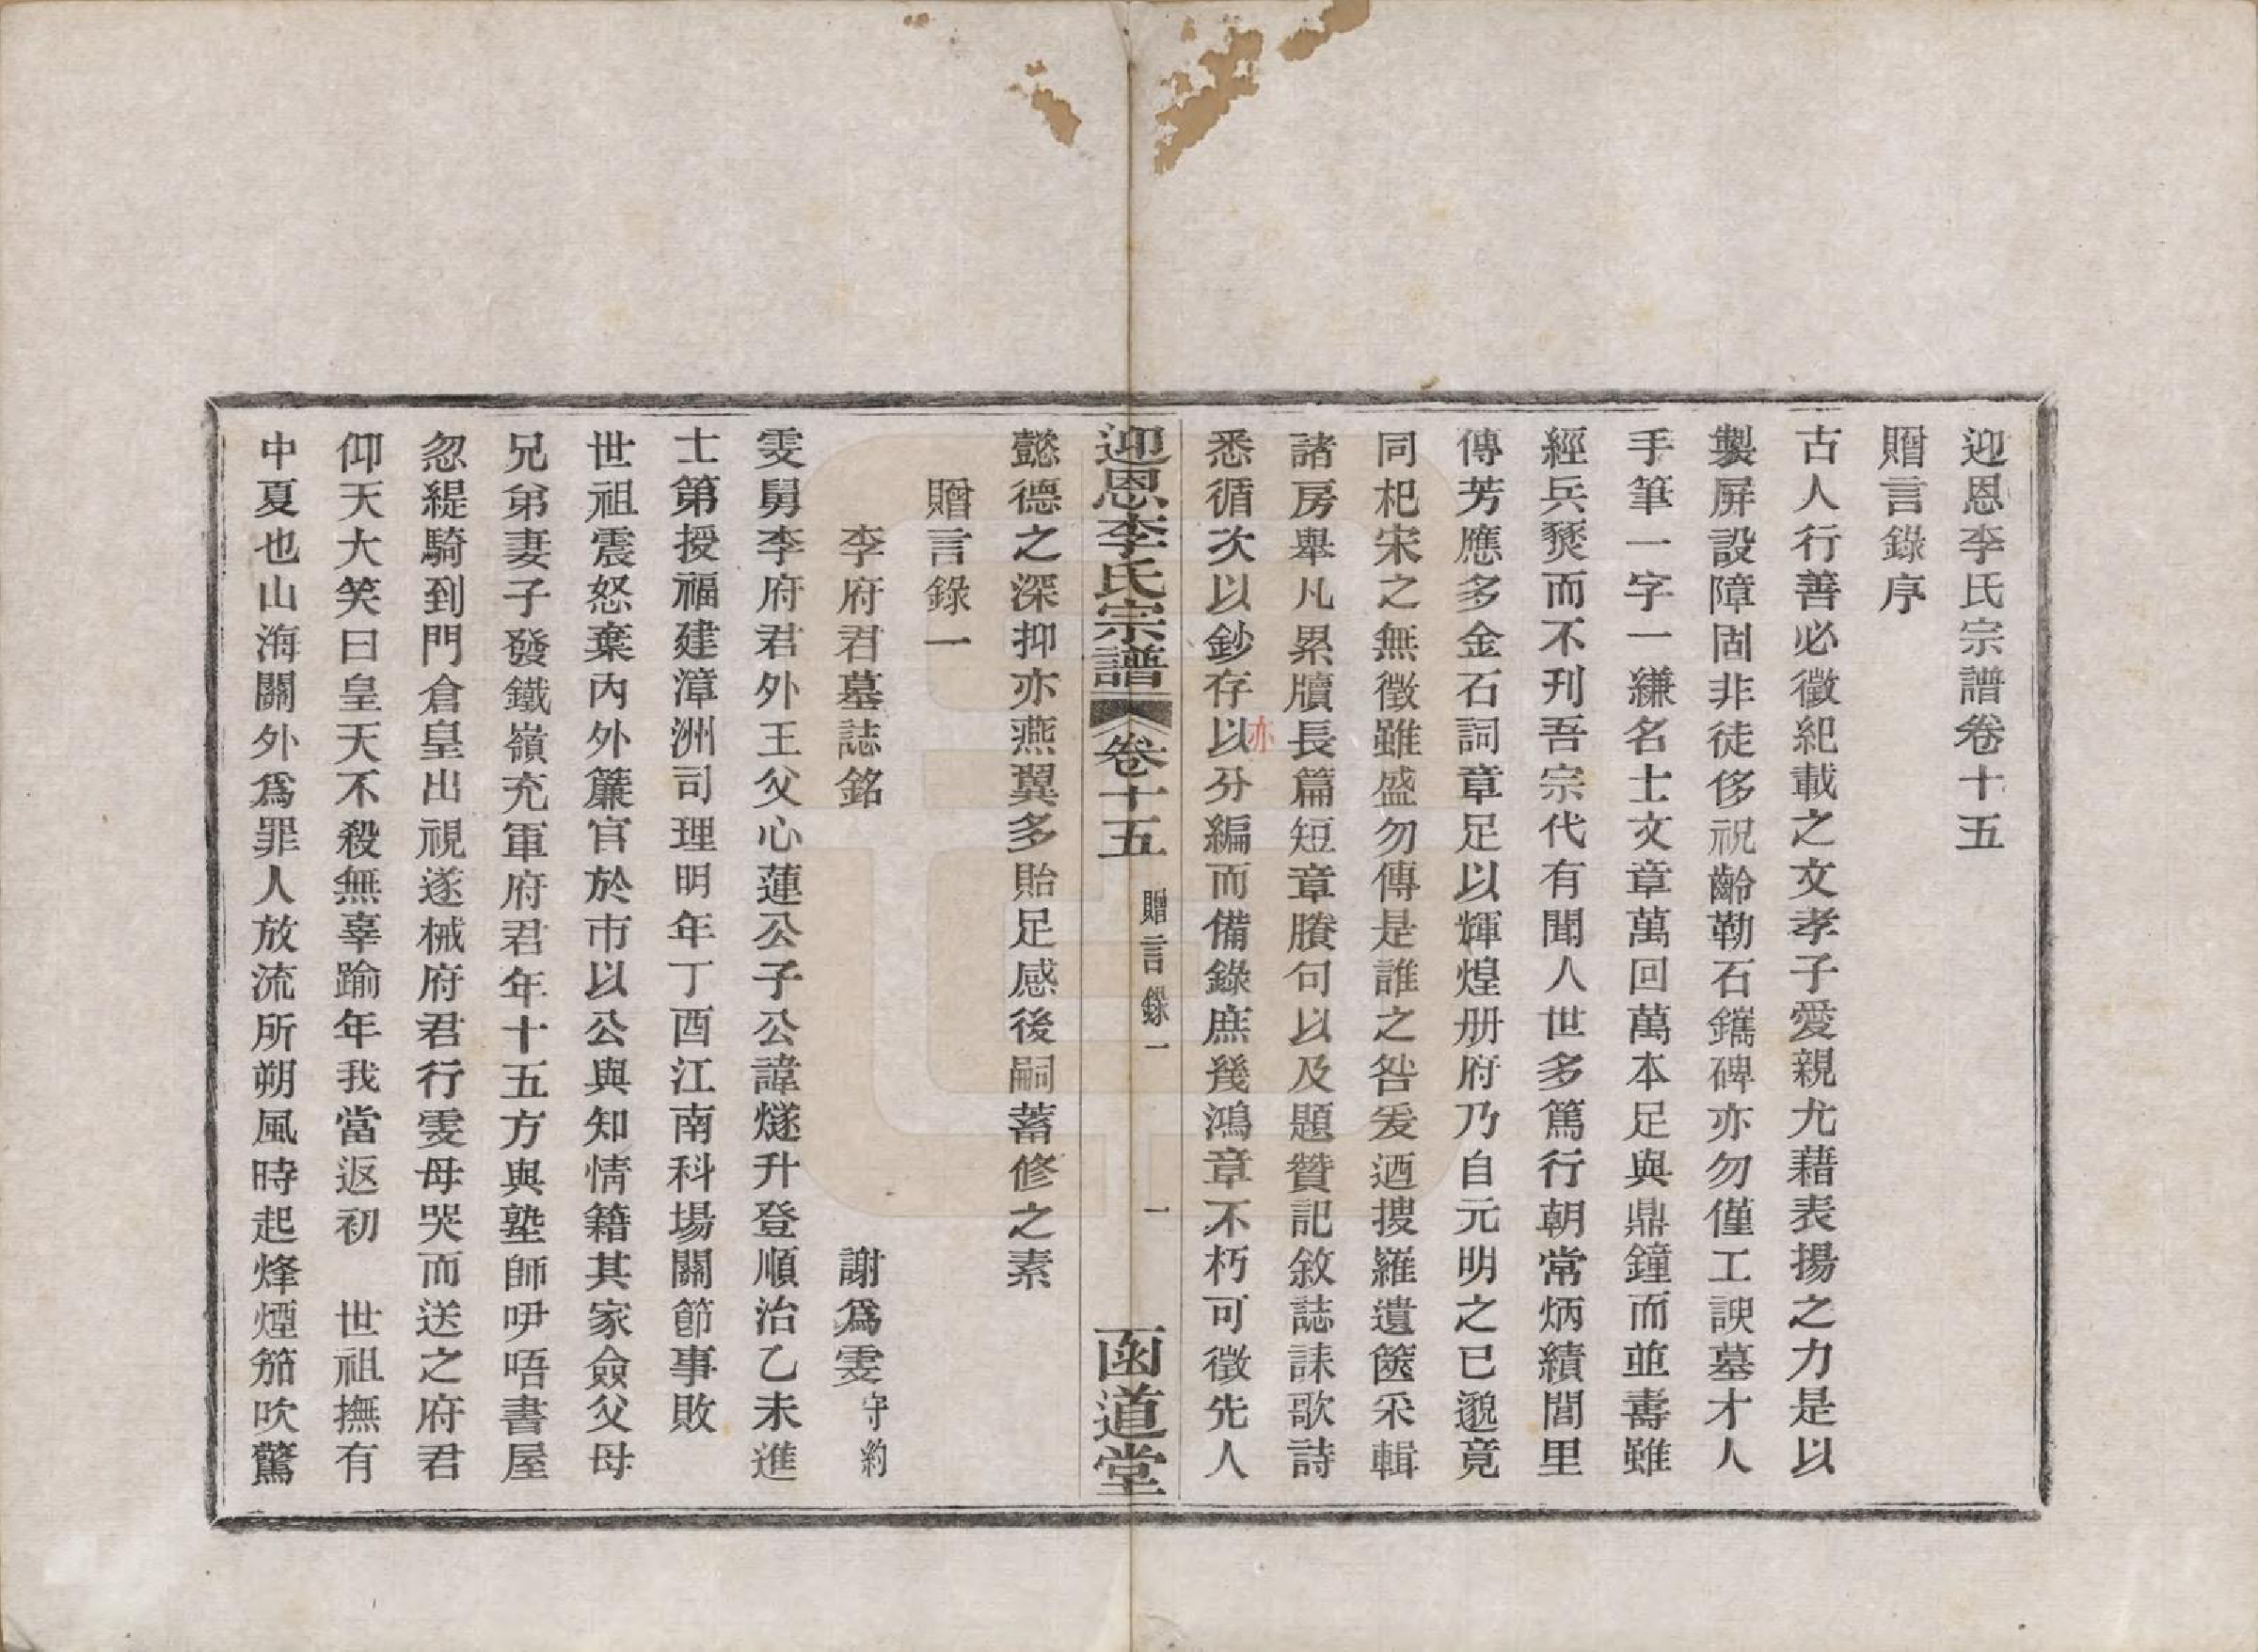 迎恩李氏宗譜卷十五
贈言錄序
古人行善必徵紀載之文孝子愛親尤藉表揚之力是以
製屏設障固非徒侈祝齡勒石鐫碑亦勿僅工諛墓才人
手筆一字一縑名士文章萬回萬本足與鼎鐘而並壽雖
經兵燹而不刋吾宗代有聞人世多篤行朝常炳績閭里
傳芳應多金石詞章足以輝煌册府乃自元明之已邈竟
同杞宋之無徵雖盛勿傳是誰之咎爰迺搜羅遺篋采輯
諸房舉凡累牘長篇短章賸句以及題贊記敘誌誄歌詩
悉循次以鈔存以分編而備錄庶幾鴻章不朽可徵先人
亦
迎恩李氏宗譜 卷十五 贈言錄一 一 函道堂
懿德之深抑亦燕翼多貽足感後嗣蓄修之素
贈言錄一
李府君墓誌銘 謝爲雯守約
雯舅李府君外王父心蓮公子公諱燧升登順治乙未進
士第授福建漳洲司理明年丁酉江南科場關節事敗
世祖震怒棄內外簾官於市以公與知情籍其家僉父母
兄弟妻子發鐵嶺充軍府君年十五方與塾師咿唔書屋
忽緹騎到門倉皇出視遂械府君行雯母哭而送之府君
仰天大笑曰皇天不殺無辜踰年我當返初 世祖撫有
中夏也山海關外爲罪人放流所朔風時起烽煙笳吹驚